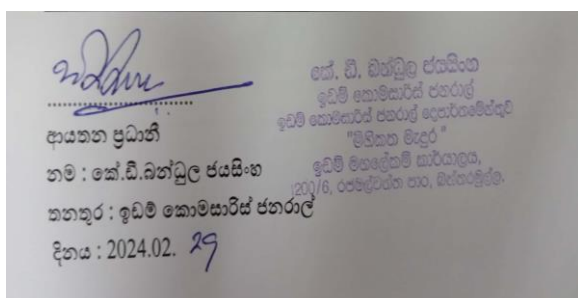 ආයතන ප්‍රධානී
නම : කේ.ඩී.බන්ධුල ජයසිංහ
තනතුර : ඉඩම් කොමසාරිස් ජනරාල්
දිනය : 2024.02. 29
කේ. ඩී. බන්ධුල ජයසිංහ
ඉඩම් කොමසාරිස් ජනරාල්
ඉඩම් කොමසාරිස් ජනරාල් දෙපාර්තමේන්තුව
"මිහිකත මැදුර "
ඉඩම් මහලේකම් කාර්යාලය,
1200/6, රජමල්වත්ත පාර, බත්තරමුල්ල.